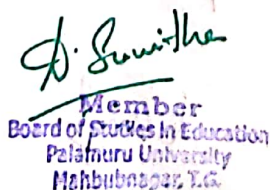 D. Sumitha
Member
Board of Studies in Education
Palamuru University
Mahbubnagar, T.G.